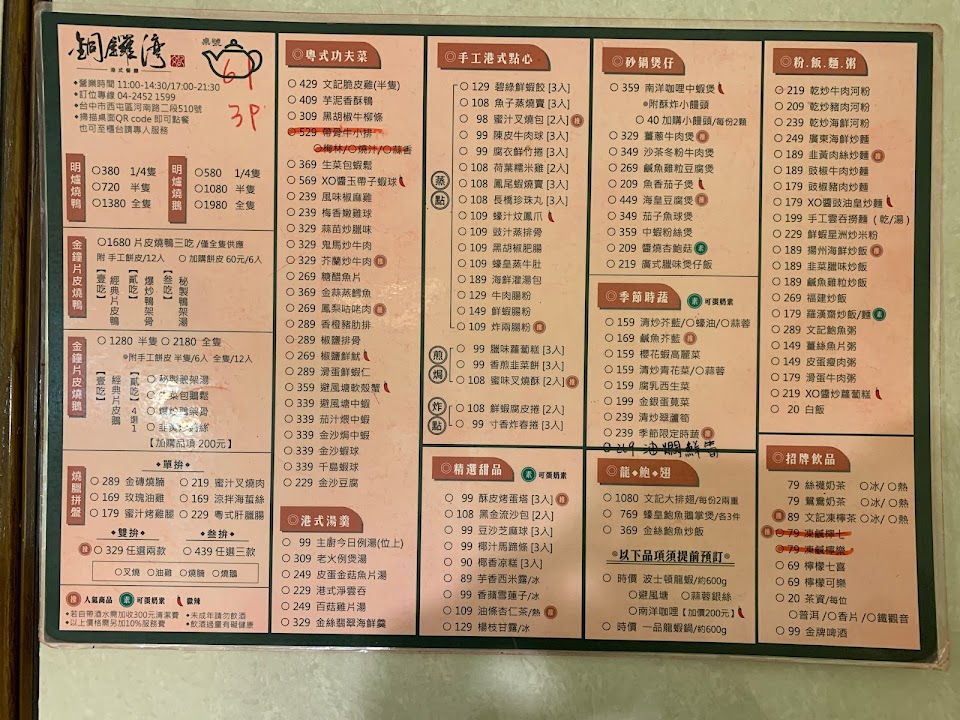 銅鑼灣
港式餐廳
桌號
61
3P
◆營業時間 11:00-14:30/17:00-21:30
◆訂位專線 04-2452 1599
◆台中市西屯區河南路二段510號
◆掃描桌面QR code 即可點餐
也可至櫃台請專人服務
明爐燒鴨
○380 1/4隻
○720 半隻
○1380 全隻
明爐燒鵝
○580 1/4隻
○1080 半隻
○1980 全隻
金鐘片皮燒鴨
○1680 片皮燒鴨三吃/僅全隻供應
附 手工餅皮/12人 ○加購餅皮 60元/6人
【壹吃】經典片皮鴨
【貳吃】爆炒鴨架骨
【叁吃】秘製鴨架湯
金鐘片皮燒鵝
○1280 半隻 ○2180 全隻
◎附手工餅皮 半隻/6人 全隻/12人
【壹吃】經典片皮鵝
【貳吃】4選1
【加購品項 200元】
燒臘拼盤
◆單拚◆
○289 金磚燒腩 ○219 蜜汁叉燒肉
○169 玫瑰油雞 ○169 涼拌海蜇絲
○179 蜜汁烤雞腿 ○229 粵式肝腊腸
◆雙拚◆ ◆叁拚◆
推 ○329 任選兩款 ○439 任選三款
○叉燒 ○油雞 ○燒腩 ○燒鵝
推 人氣商品 素 可蛋奶素 微辣
◆若自帶酒水需加收300元清潔費 ◆未成年請勿飲酒
◆以上價格需另加10%服務費 ◆飲酒過量有礙健康
◎粵式功夫菜
○429 文記脆皮雞(半隻)
○409 芋泥香酥鴨
○309 黑胡椒牛柳條
○529 帶骨牛小排
○梅林/○燒汁/○蒜香
○369 生菜包蝦鬆
○569 XO醬玉帶子蝦球
○239 風味椒麻雞
○239 梅香嫩雞球
○329 蒜苗炒臘味
○329 鬼馬炒牛肉
○329 芥蘭炒牛肉 推
○269 糖醋魚片
○369 金蒜蒸鱈魚
○269 鳳梨咕咾肉 推
○289 香橙豬肋排
○289 椒鹽排骨
○269 椒鹽鮮魷
○289 滑蛋鮮蝦仁
○359 避風塘軟殼蟹
○339 避風塘中蝦
○339 茄汁煨中蝦
○339 金沙焗中蝦
○339 金沙蝦球
○339 千島蝦球
○229 金沙豆腐
◎港式湯羹
○99 主廚今日例湯(位上)
○309 老火例煲湯
○249 皮蛋金菇魚片湯
○229 港式淨雲吞
○249 百菇雞片湯
○329 金絲翡翠海鮮羹
◎手工港式點心
蒸點
○129 碧綠鮮蝦餃 [3入]
○108 魚子蒸燒賣 [3入]
○98 蜜汁叉燒包 [2入] 推
○99 陳皮牛肉球 [3入]
○99 腐衣鮮竹捲 [3入]
○108 荷葉糯米雞 [2入]
○108 鳳尾蝦燒賣 [3入]
○108 長橋珍珠丸 [3入]
○109 蠔汁炆鳳爪
○109 豉汁蒸排骨
○109 黑胡椒肥腸
○109 蠔皇蒸牛肚
○189 海鮮灌湯包
○129 牛肉腸粉
○149 鮮蝦腸粉
○109 炸兩腸粉 推
煎焗
○99 臘味蘿蔔糕 [3入]
○99 香煎韭菜餅 [3入]
○108 蜜味叉燒酥 [2入] 推
炸點
○108 鮮蝦腐皮捲 [2入]
○99 寸香炸春捲 [3入]
◎精選甜品 素 可蛋奶素
○99 酥皮烤蛋塔 [3入] 推
○108 黑金流沙包 [2入]
○99 豆沙芝麻球 [3入]
○99 椰汁馬蹄條 [3入]
○90 椰香涼糕 [3入]
○89 芋香西米露/冰
○99 香蘋雪蓮子/冰
○109 油條杏仁茶/熱 推
○129 楊枝甘露/冰
◎砂鍋煲仔
○359 南洋咖哩中蝦煲
◎附酥炸小饅頭
○40 加購小饅頭/每份2顆
○329 薑蔥牛肉煲 推
○349 沙茶冬粉牛肉煲
○269 鹹魚雞粒豆腐煲
○209 魚香茄子煲
○449 海皇豆腐煲 推
○349 茄子魚球煲
○359 中蝦粉絲煲
○209 醬燒杏鮑菇 素
○219 廣式臘味煲仔飯
◎季節時蔬 素 可蛋奶素
○159 清炒芥藍/○蠔油/○蒜蓉
○169 鹹魚芥藍 推
○159 櫻花蝦高麗菜
○159 清炒青花菜/○蒜蓉
○159 腐乳西生菜
○199 金銀蛋莧菜
○239 清炒翠蘆筍
○239 季節限定時蔬 推
○219 油燜鮮香
◎龍●鮑●翅
○1080 文記大排翅/每份2兩重
○769 蠔皇鮑魚鵝掌煲/各3件
○369 金絲鮑魚炒飯
◎以下品項須提前預訂◎
○時價 波士頓龍蝦/約600g
○避風塘 ○蒜蓉銀絲
○南洋咖哩【加價200元】
○時價 一品龍蝦鍋/約600g
◎粉.飯.麵.粥
○219 乾炒牛肉河粉
○209 乾炒豬肉河粉
○239 乾炒海鮮河粉
○249 廣東海鮮炒麵
○189 韭黃肉絲炒麵 推
○189 豉椒牛肉炒麵
○179 豉椒豬肉炒麵
○179 XO醬豉油皇炒麵
○199 手工雲吞撈麵（乾/湯）
○229 鮮蝦星洲炒米粉
○189 揚州海鮮炒飯 推
○189 韭菜臘味炒飯
○189 鹹魚雞粒炒飯
○269 福建炒飯
○179 羅漢齋炒飯/麵 素
○289 文記鮑魚粥
○149 薑絲魚片粥
○149 皮蛋瘦肉粥
○179 滑蛋牛肉粥
○219 XO醬炒蘿蔔糕
○20 白飯
◎招牌飲品
79 絲襪奶茶 ○冰/○熱
79 鴛鴦奶茶 ○冰/○熱
推 89 文記凍檸茶 ○冰/○熱
推 ○79 凍鹹檸七
○79 凍鹹檸樂
○69 檸檬七喜
○69 檸檬可樂
○20 茶資/每位
○普洱/○香片/○鐵觀音
○99 金牌啤酒